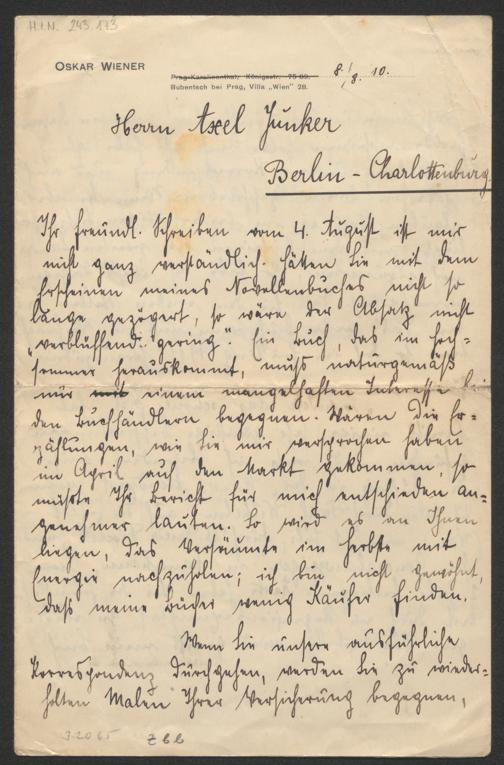 H.I.N. 243.173
OSKAR WIENER
Prag-Karolinenthal, Königsstr. 75-89.
Bubentsch bei Prag, Villa „Wien" 28.
8./8. 10.
Herrn Axel Junker
Berlin - Charlottenburg.
Ihr freundl. Schreiben vom 4. August ist mir
nicht ganz verständlich. Hätten Sie mit dem
Erscheinen meines Novellenbuches nicht so
lange gezögert, so wäre der Absatz nicht
„verblüffend gering". Ein Buch, das im Hoch-
sommer herauskommt, muss naturgemäß
nur mit einem mangelhaften Interesse bei
den Buchhändlern begegnen. Wären die Er=
zählungen, wie Sie mir versprochen haben
im April auf den Markt gekommen, so
müsste Ihr Bericht für mich entschieden an=
genehmer lauten. So wird es an Ihnen
liegen, das Versäumte im Herbste mit
Energie nachzuholen; ich bin nicht gewöhnt,
dass meine Bücher wenig Käufer finden.
Wenn Sie unsere ausführliche
Korrespondenz durchgehen, werden Sie zu wieder=
holten Malen Ihrer Versicherung begegnen,